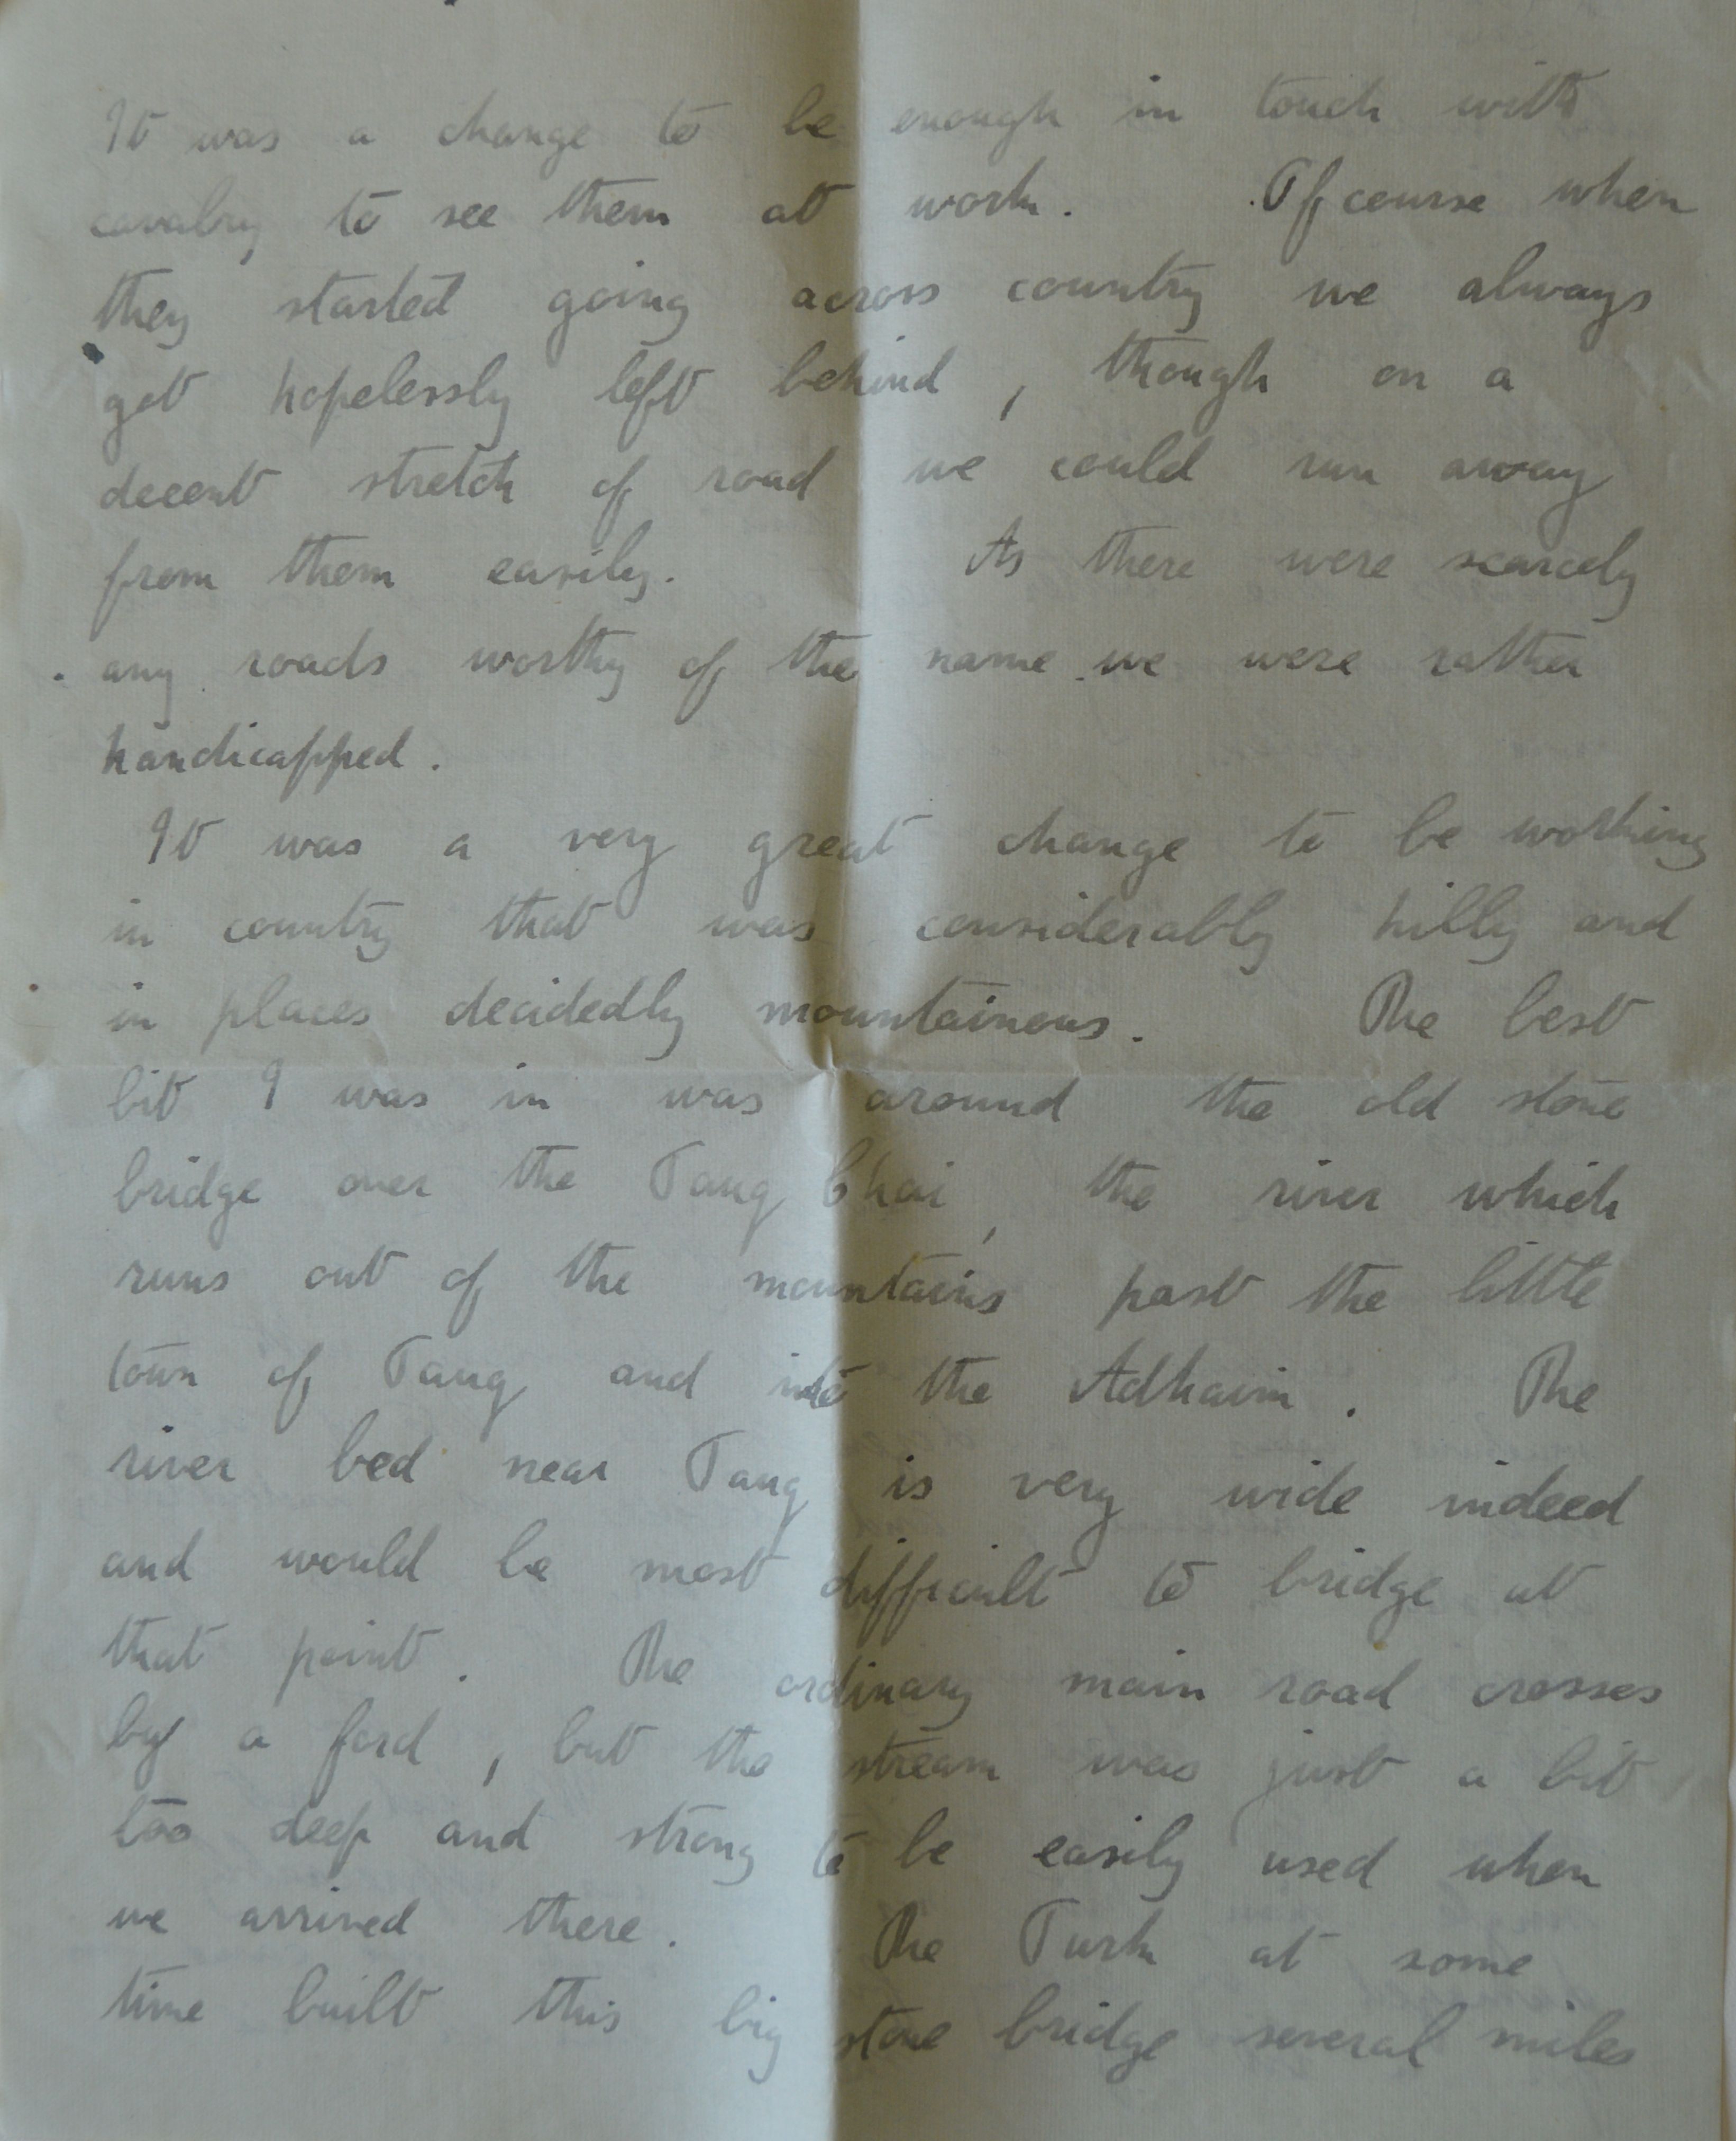 It was a change to be enough in touch with
cavalry to see them at work. Of course when
they started going across country we always
got hopelessly left behind, though on a
decent stretch of road we could run away
from them easily. As there were scarcely
any roads worthy of the name we were rather
handicapped.
It was a very great change to be working
in country that was considerably hilly and
in places decidedly mountainous. The best
bit I was in was around the old stone
bridge over the Tauq Chai, the river which
runs out of the mountains past the little
town of Tauq and into the Adhaim. The
river bed near Tauq is very wide indeed
and would be most difficult to bridge at
that point. The ordinary main road crosses
by a ford, but the stream was just a bit
too deep and strong to be easily used when
we arrived there. The Turk at some
time built this big stone bridge several miles